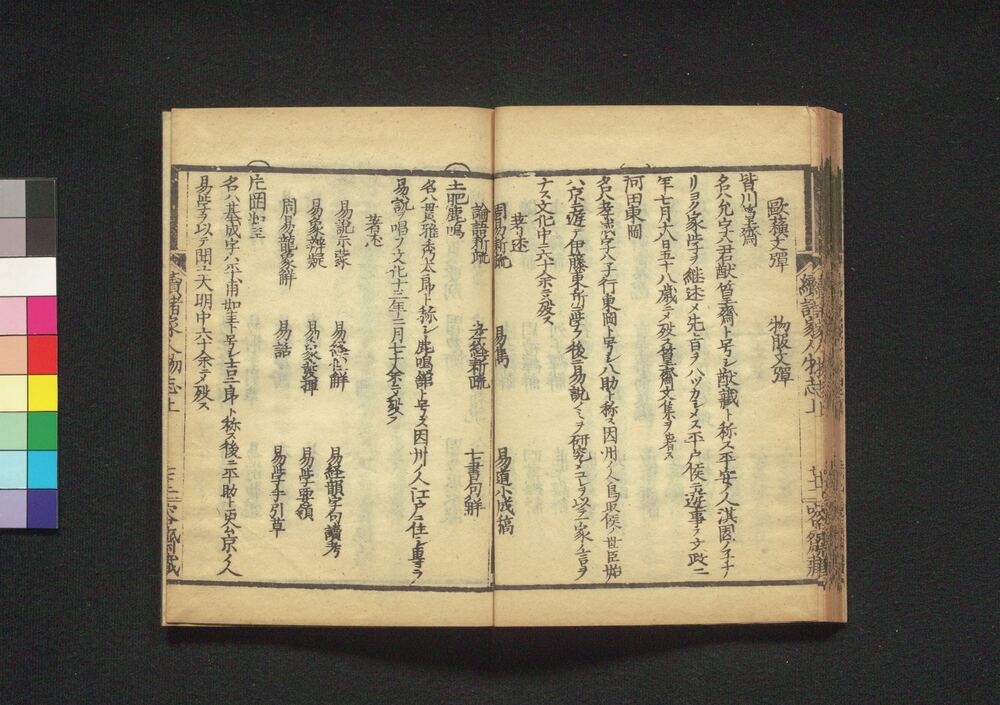 歐蘓文彈　物服文彈
皆川篁齋
名ハ允字ハ君猷篁齋ト号シ猷藏ト称ス平安ノ人淇園ノ子ナ
リヨク家学ヲ継述メ先百ヲハツカシメス平戸侯
年七月六日五十八歳ニテ殁ス篁齋文集ヲ著ス
河田東岡
名ハ孝成字ハ子行東岡ト号シ八助ト称ス因州ノ人鳥取侯ノ世臣
ハ京ニ遊テ伊藤東所ニ学ヲ後ニ易説ノミヲ研究メ一家ノ言ヲ
ナス文化中六十余ニテ殁ス
著述
周易新疏　易雋　易道小成稿
論語新疏　孝経新疏　七書句解
土肥鹿鳴
名ハ貫雅秀太郎ト称シ鹿鳴館ト号ス因州ノ人江戸ニ住シ専ラ
易説ヲ唱フ文化十三年十二月七十余ニテ殁ス
著述
易説示蒙　易経解　易経韻字句讀考
易象辨疑　易象發揮　易学要領
周易龍象解　易話　易学手引草
片岡如圭
名ハ基成字ハ如圭ト号シ吉二郎ト称ス後ニ平助ト更ム京ノ人
易学ヲ以テ聞エ天明中六十余ニテ殁ス
續諸家人物志上